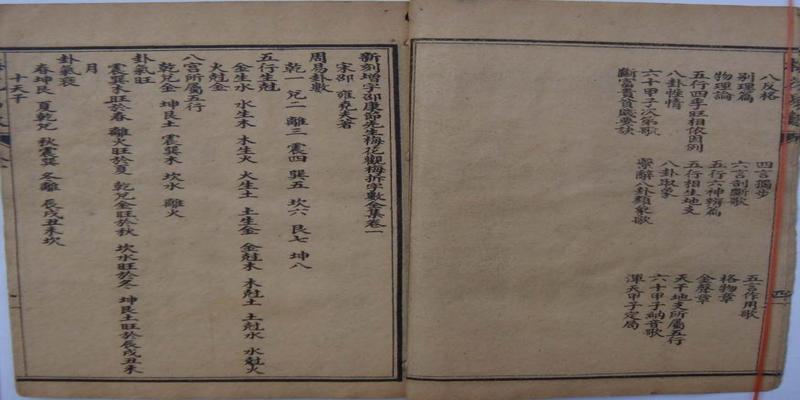 八反格 四言獨步 五言作用歌
別理篇 六言剖斷歌 格物章
物理論 五行六神辨篇 金聲章
五行四季旺相依因例 五行相生地支 天干地支所屬五行
八卦性情 八卦取象 六十甲子納音歌
六十甲子次第歌 繫辭八卦類象歌 渾天甲子定局
斷富貴貧賤要訣
新刻增字邵康節先生梅花觀梅拆字數全集卷一
宋邵 雍堯夫著
周易卦數
乾一 兌二 離三 震四 巽五 坎六 艮七 坤八
五行生尅
金生水 水生木 木生火 火生土 土生金 金尅木 木尅土 土尅水 水尅火
火尅金
八宮所屬五行
乾兌金 坤艮土 震巽木 坎水 離火
卦氣旺
震巽木旺於春 離火旺於夏 乾兌金旺於秋 坎水旺於冬 坤艮土旺於辰戌丑未
月
卦氣衰
春坤艮 夏乾兌 秋震巽 冬離 辰戌丑未坎
十天干